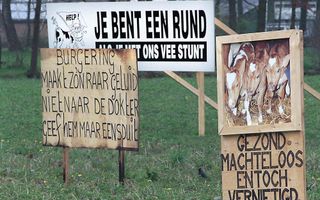 HELP!
JE BENT EEN RUND
ALS JE MET ONS VEE STUNT
BURGERING
MAAKT Z'ON RAAR GELUID
NIET NAAR DE DOKTER
GEEF HEM MAAR EEN SPUIT
GEZOND
MACHTELOOS
EN TOCH
VERNIETIGD